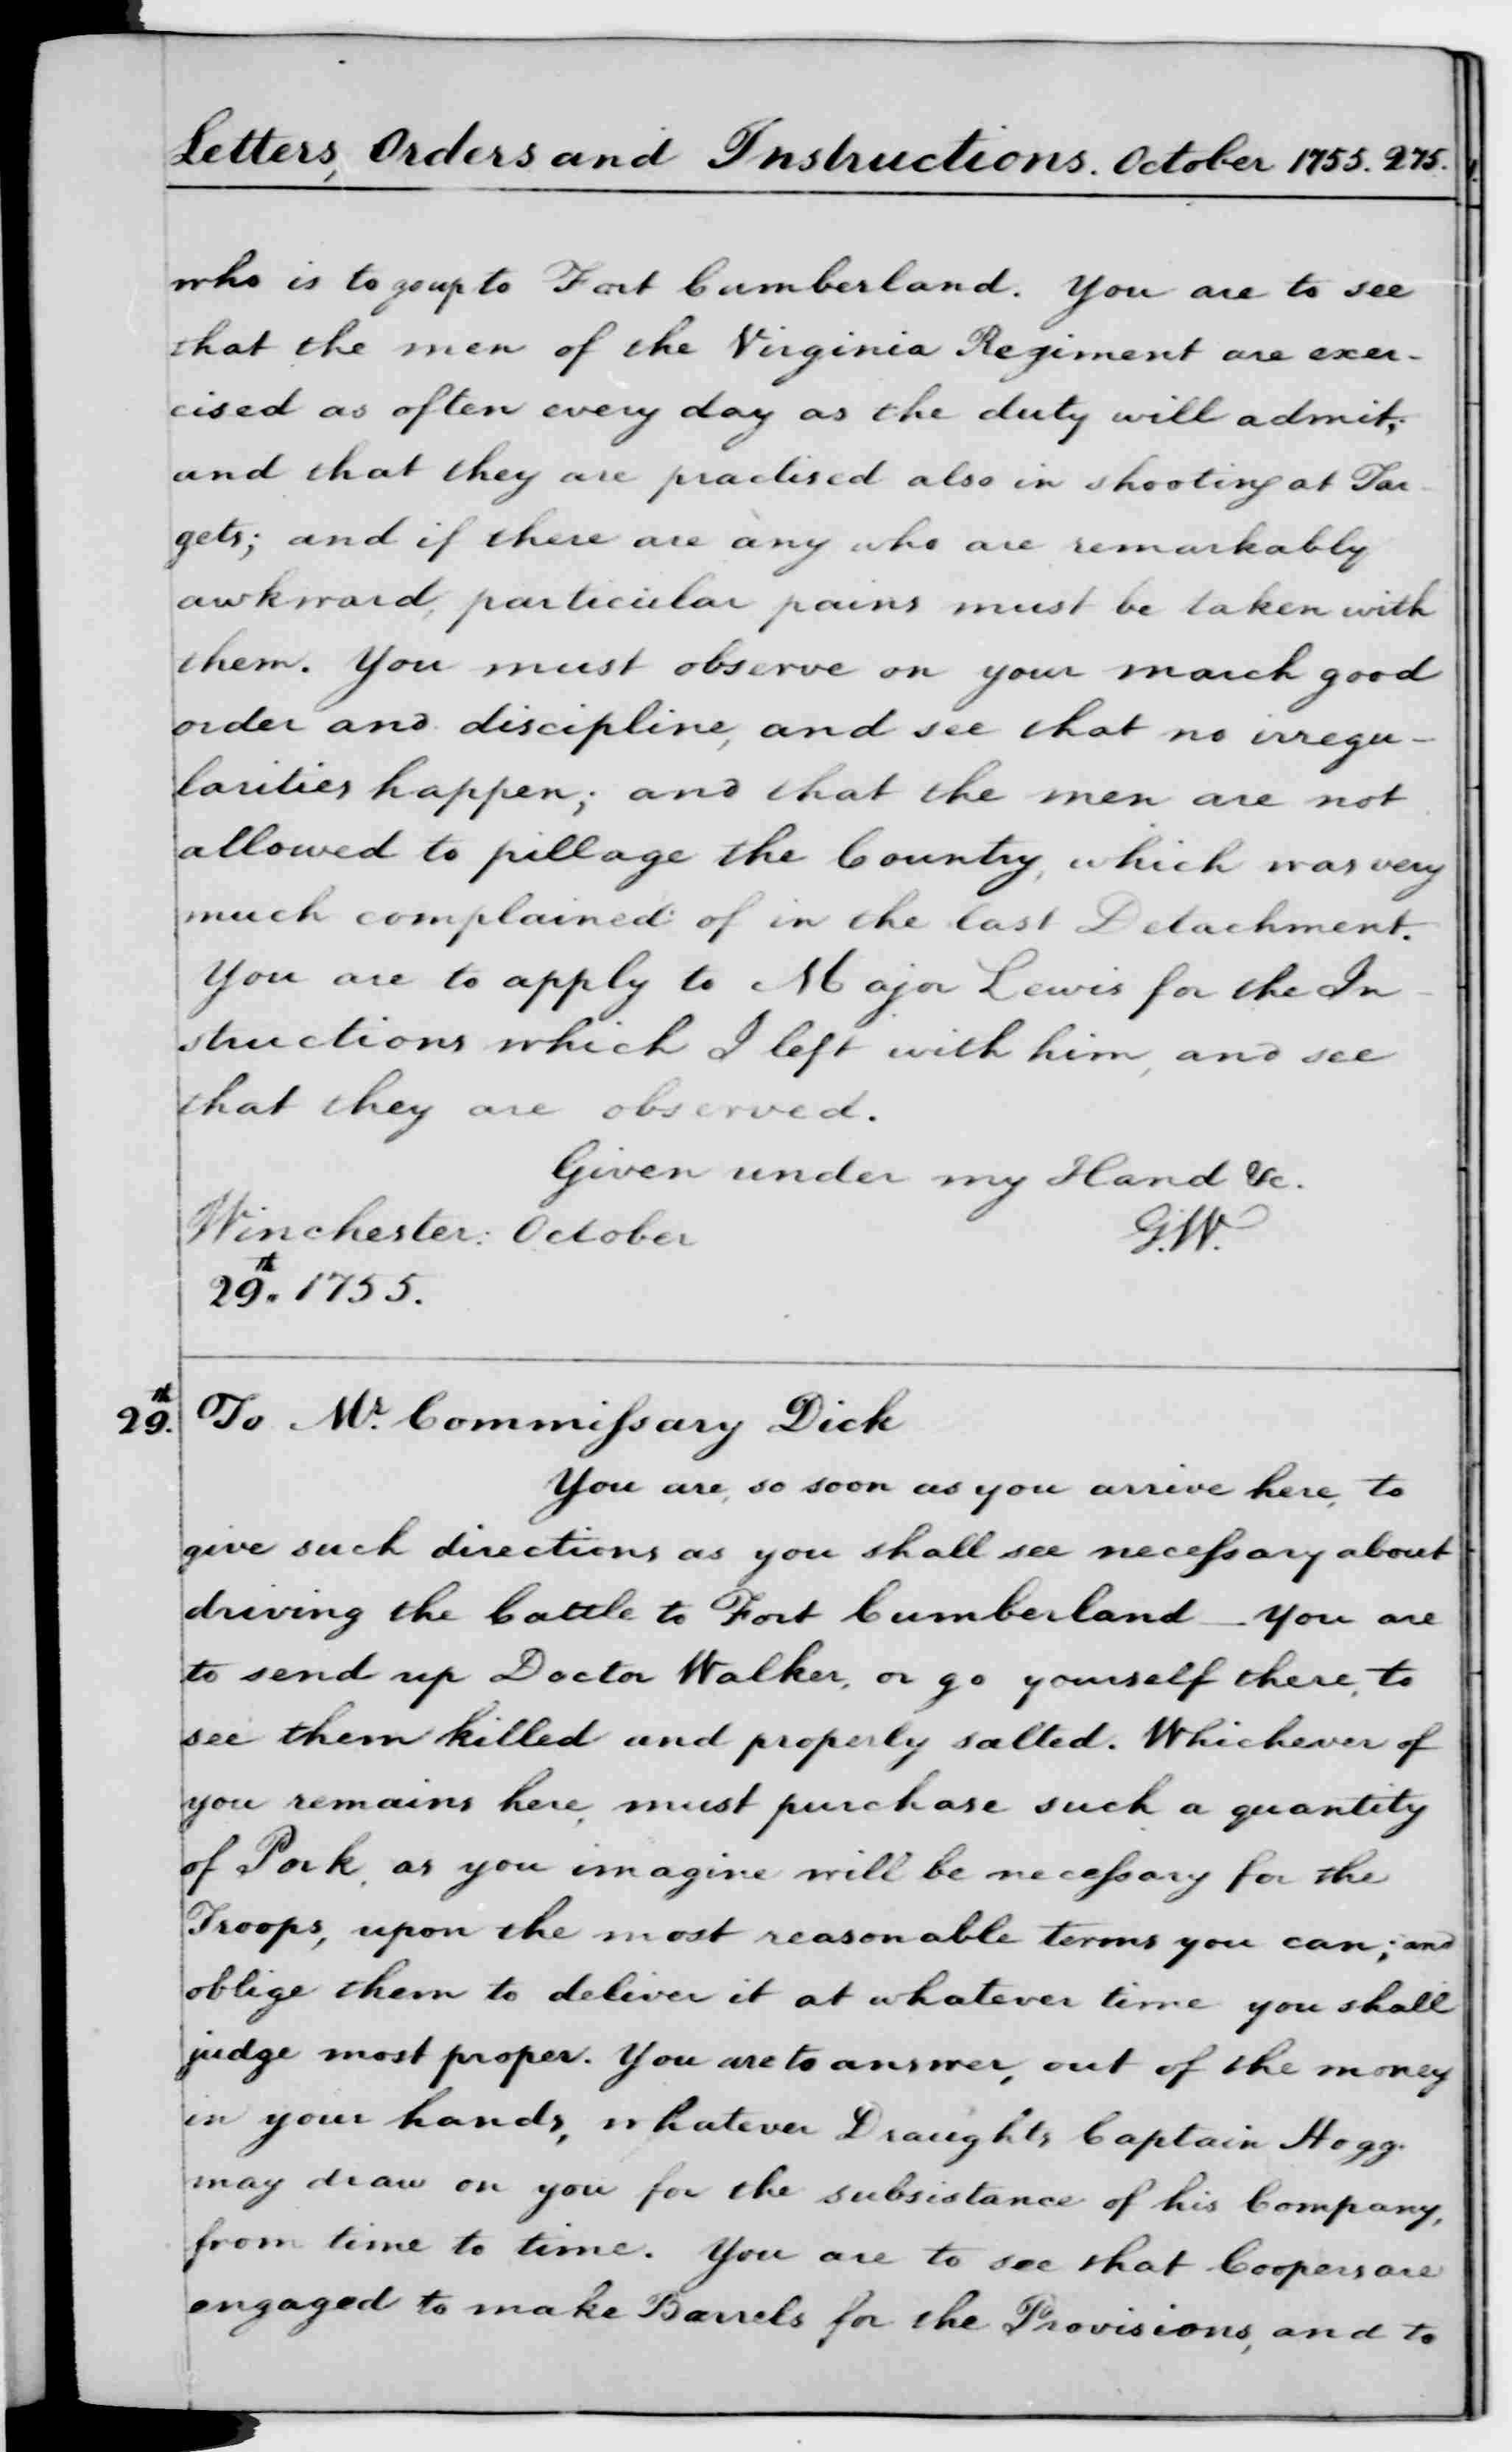 Letters, Orders and Instructions. October 1755. 275.
who is to go up to Fort Cumberland. You are to see
that the men of the Virginia Regiment are exer-
cised as often every day as the duty will admit;
and that they are practised also in shooting at Tar-
gets; and if there are any who are remarkably
awkward, particular pains must be taken with
them. You must observe on your march good
order and discipline, and see that no irregu-
larities happen; and that the men are not
allowed to pillage the Country, which was very
much complained of in the last Detachment.
You are to apply to Major Lewis for the In-
structions which I left with him, and see
that they are observed.
Given under my Hand &c.
Winchester: October G.W.
29th. 1755.
29th. To Mr. Commissary Dick
You are, so soon as you arrive here, to
give such directions as you shall see necessary about
driving the Cattle to Fort Cumberland — You are
to send up Doctor Walker, or go yourself there, to
see them killed and properly salted. Whichever of
you remains here, must purchase such a quantity
of Pork, as you imagine will be necessary for the
Troops, upon the most reasonable terms you can; and
oblige them to deliver it at whatever time you shall
judge most proper. You are to answer, out of the money
in your hands, whatever Draughts Captain Hogg
may draw on you for the subsistance of his Company,
from time to time. You are to see that Coopers are
engaged to make Barrels for the Provisions, and to